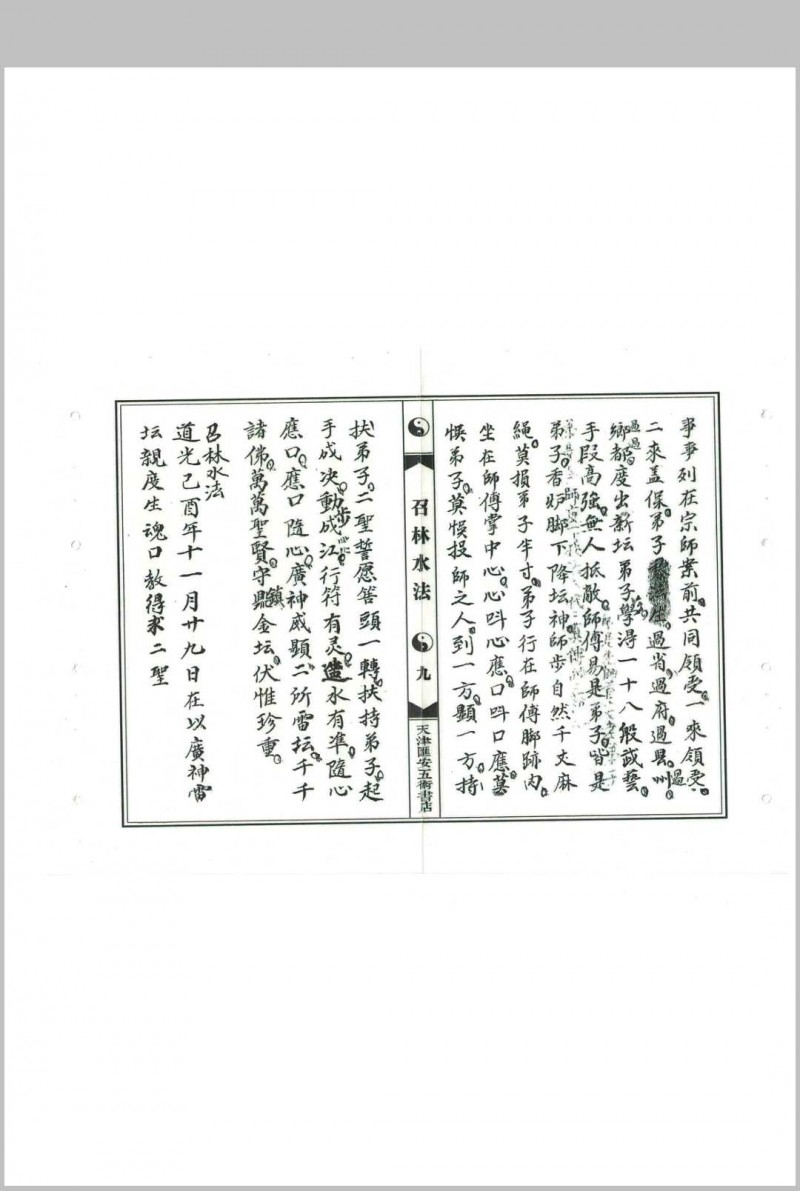 事事列在宗師案前共同領受一來領受
二來盖保弟子過省過府過县州過
鄉都度出新坛弟子學得一十八般武藝
手段高強無人抵敵師傅易是弟子皆是
弟子香炉脚下降坛神師步自然千丈麻
繩莫損弟子半寸弟子行在師傅脚跡内
坐在師傅掌中心心叫心應口叫口應莫
悞弟子莫悞投師之人到一方顯一方持
召林水法
九
天津匯安五術書店
扶弟子二聖誓愿答頭一轉扶持弟子起
手成决動步成江行符有灵造水有凖隨心
應口應口隨心廣神威顯二所雷坛千千
諸佛萬萬聖賢守鎮鼎金坛伏惟珍重
召林水法
道光己酉年十一月廿九日在以廣神雷
坛親度生魂口教得求二聖